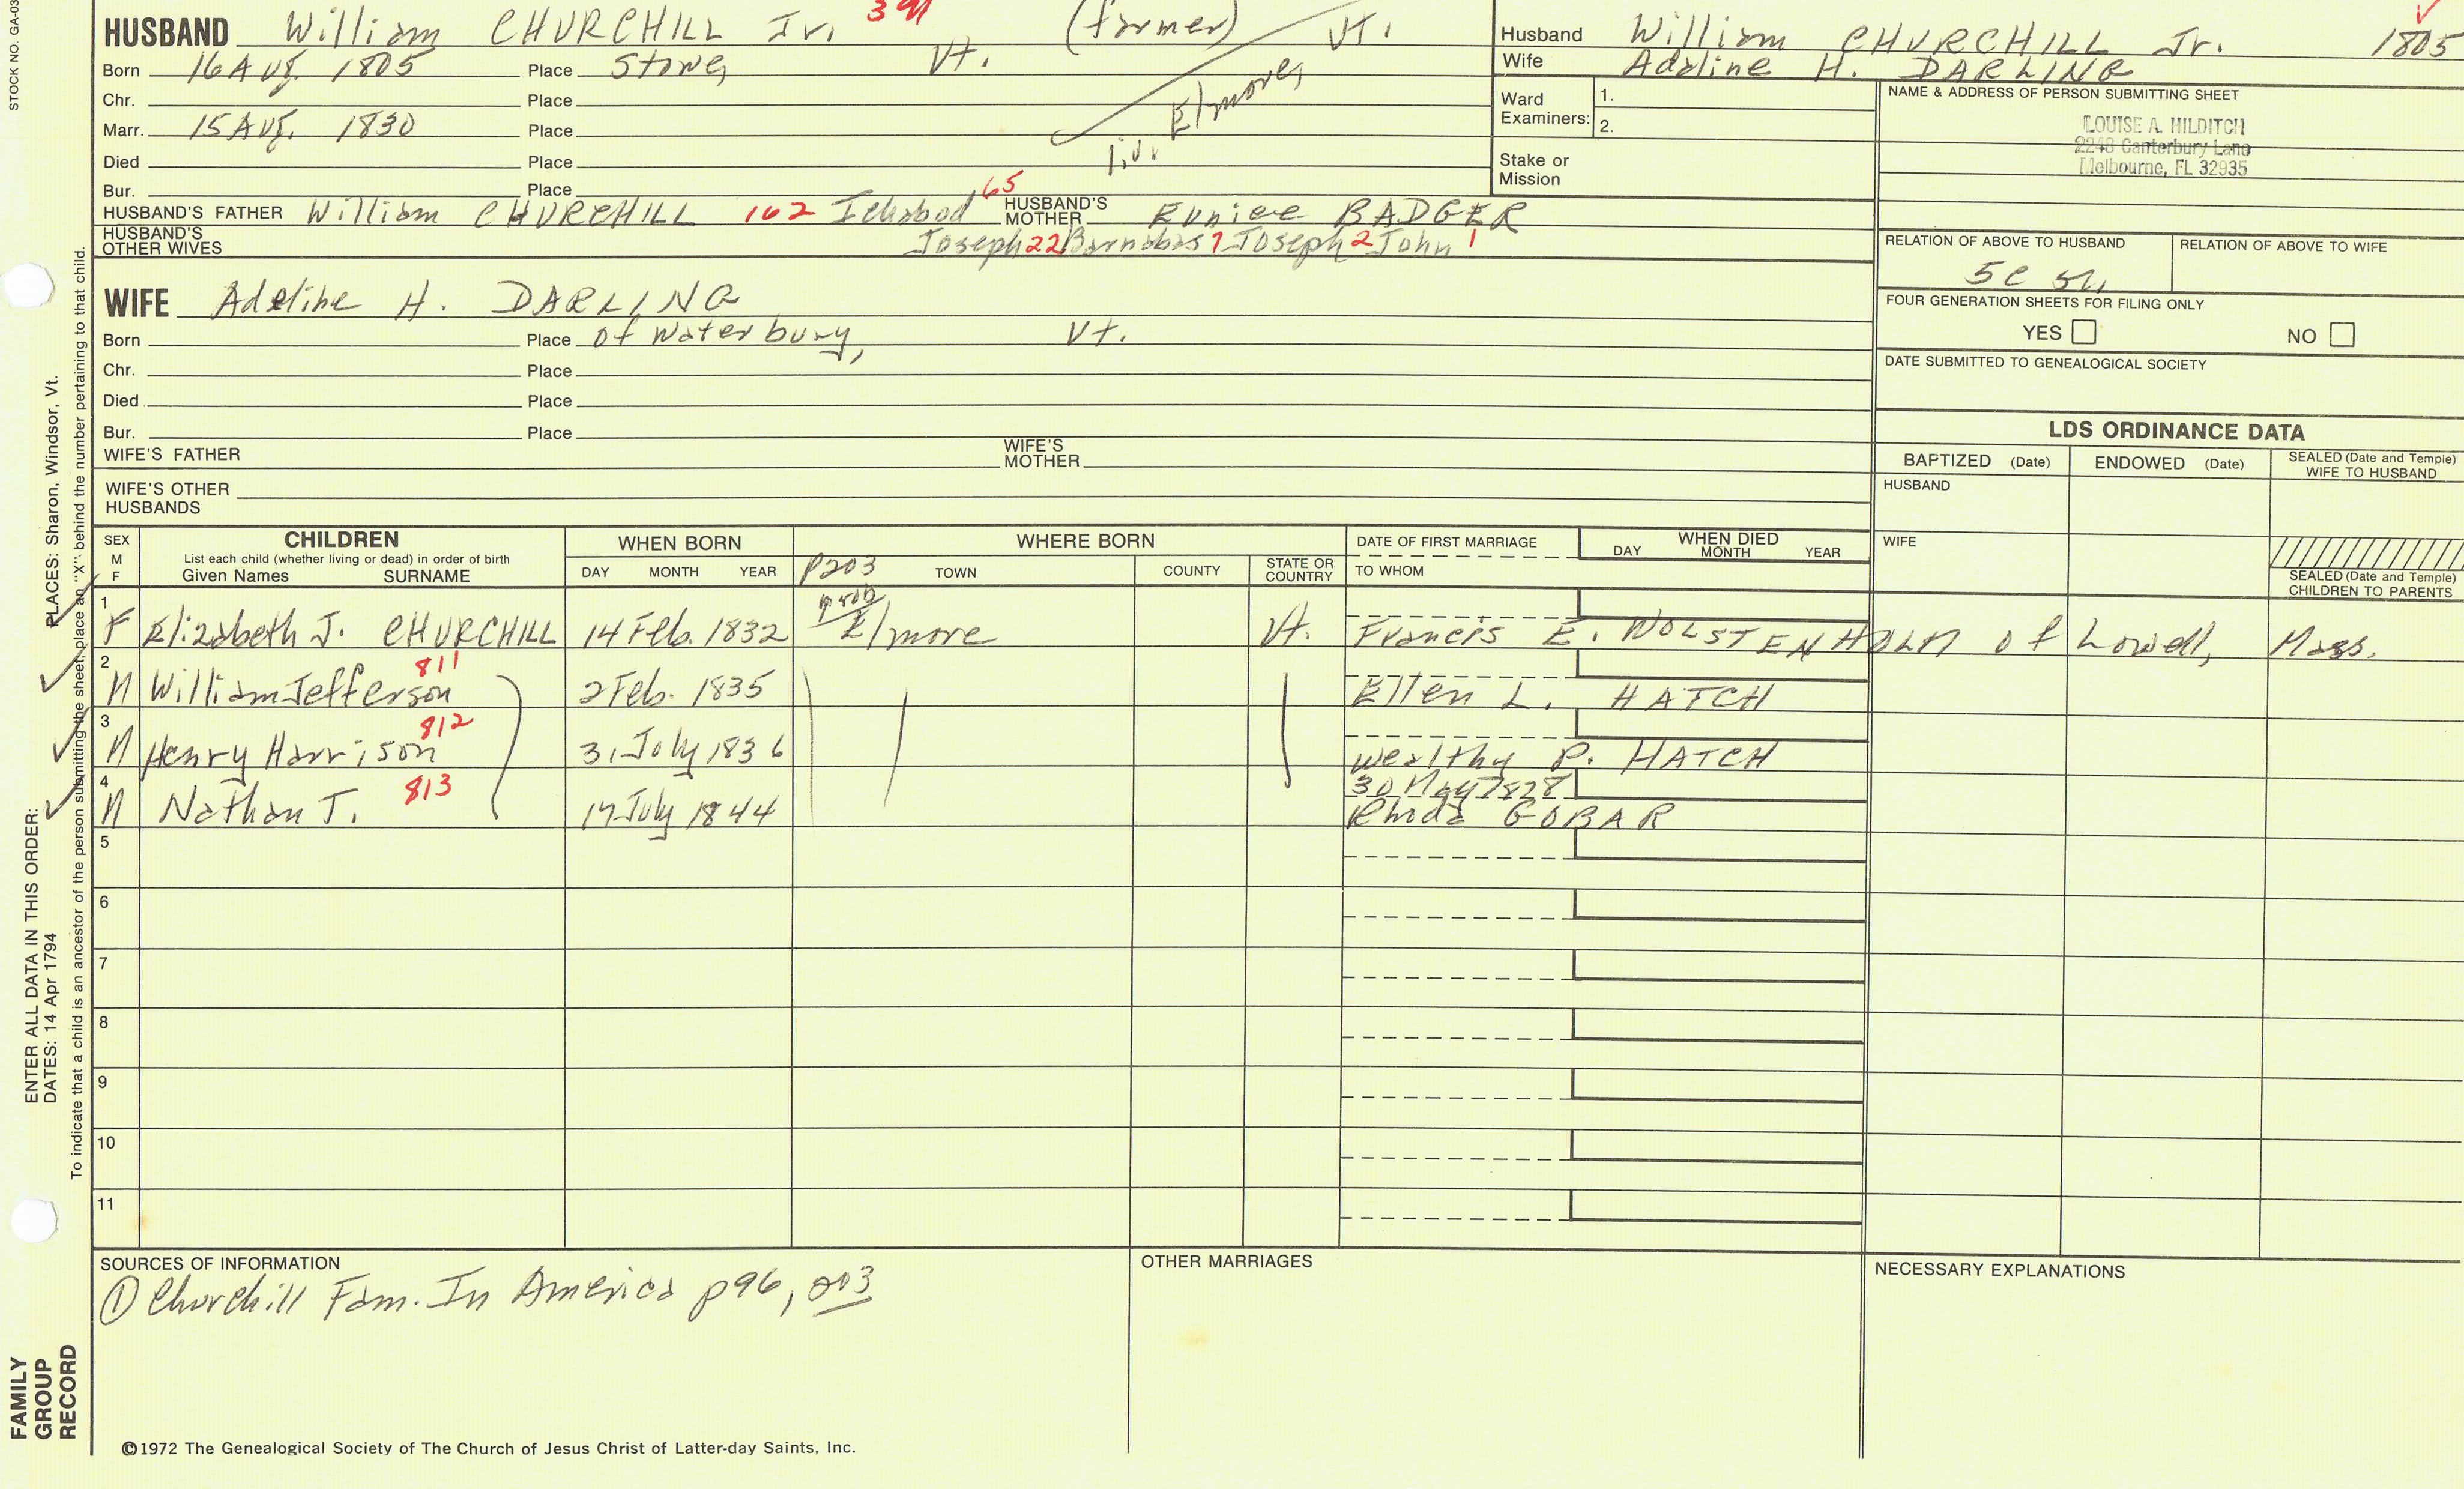 STOCK NO. GA-03
HUSBAND William CHURCHILL Jr. 391 (farmer) Vt.
Born 16 Aug. 1805 Place Stowe, Vt.
Chr. Place
Marr. 15 Aug. 1830 Place liv. Elmore,
Died Place
Bur. Place
HUSBAND'S FATHER William CHURCHILL 162 Ichabod 65 HUSBAND'S MOTHER Eunice BADGER
HUSBAND'S OTHER WIVES Joseph 22 Barnabas 7 Joseph 2 John 1
Husband William CHURCHILL Jr. 1805
Wife Adaline H. DARLING
Ward Examiners: 1.
2.
Stake or Mission
NAME & ADDRESS OF PERSON SUBMITTING SHEET
LOUISE A. HILDITCH
2248 Canterbury Lane
Melbourne, FL 32935
RELATION OF ABOVE TO HUSBAND RELATION OF ABOVE TO WIFE
5C
FOUR GENERATION SHEETS FOR FILING ONLY
YES NO
DATE SUBMITTED TO GENEALOGICAL SOCIETY
WIFE Adeline H. DARLING
Born Place of Waterbury, Vt.
Chr. Place
Died Place
Bur. Place
WIFE'S FATHER WIFE'S MOTHER
WIFE'S OTHER HUSBANDS
LDS ORDINANCE DATA
BAPTIZED (Date) ENDOWED (Date) SEALED (Date and Temple) WIFE TO HUSBAND
HUSBAND
WIFE
SEALED (Date and Temple) CHILDREN TO PARENTS
SEX M F
CHILDREN
List each child (whether living or dead) in order of birth
Given Names SURNAME
WHEN BORN
DAY MONTH YEAR
WHERE BORN
P203 TOWN COUNTY STATE OR COUNTRY
DATE OF FIRST MARRIAGE
TO WHOM
WHEN DIED
DAY MONTH YEAR
1 F Elizabeth J. CHURCHILL 14 Feb. 1832 prob Elmore Vt. Francis E. WOLSTENHOLM of Lowell, Mass.
2 M William Jefferson 811 2 Feb. 1835 Ellen L. HATCH
3 M Henry Harrison 812 31 July 1836 Wealthy P. HATCH
4 M Nathan T. 813 17 July 1844 30 May 1828 Rhoda GOBAR
5
6
7
8
9
10
11
SOURCES OF INFORMATION
① Churchill Fam. In America p96, 203
OTHER MARRIAGES
NECESSARY EXPLANATIONS
©1972 The Genealogical Society of The Church of Jesus Christ of Latter-day Saints, Inc.
FAMILY GROUP RECORD
ENTER ALL DATA IN THIS ORDER:
DATES: 14 Apr 1794 PLACES: Sharon, Windsor, Vt.
To indicate that a child is an ancestor of the person submitting the sheet, place an "X" behind the number pertaining to that child.